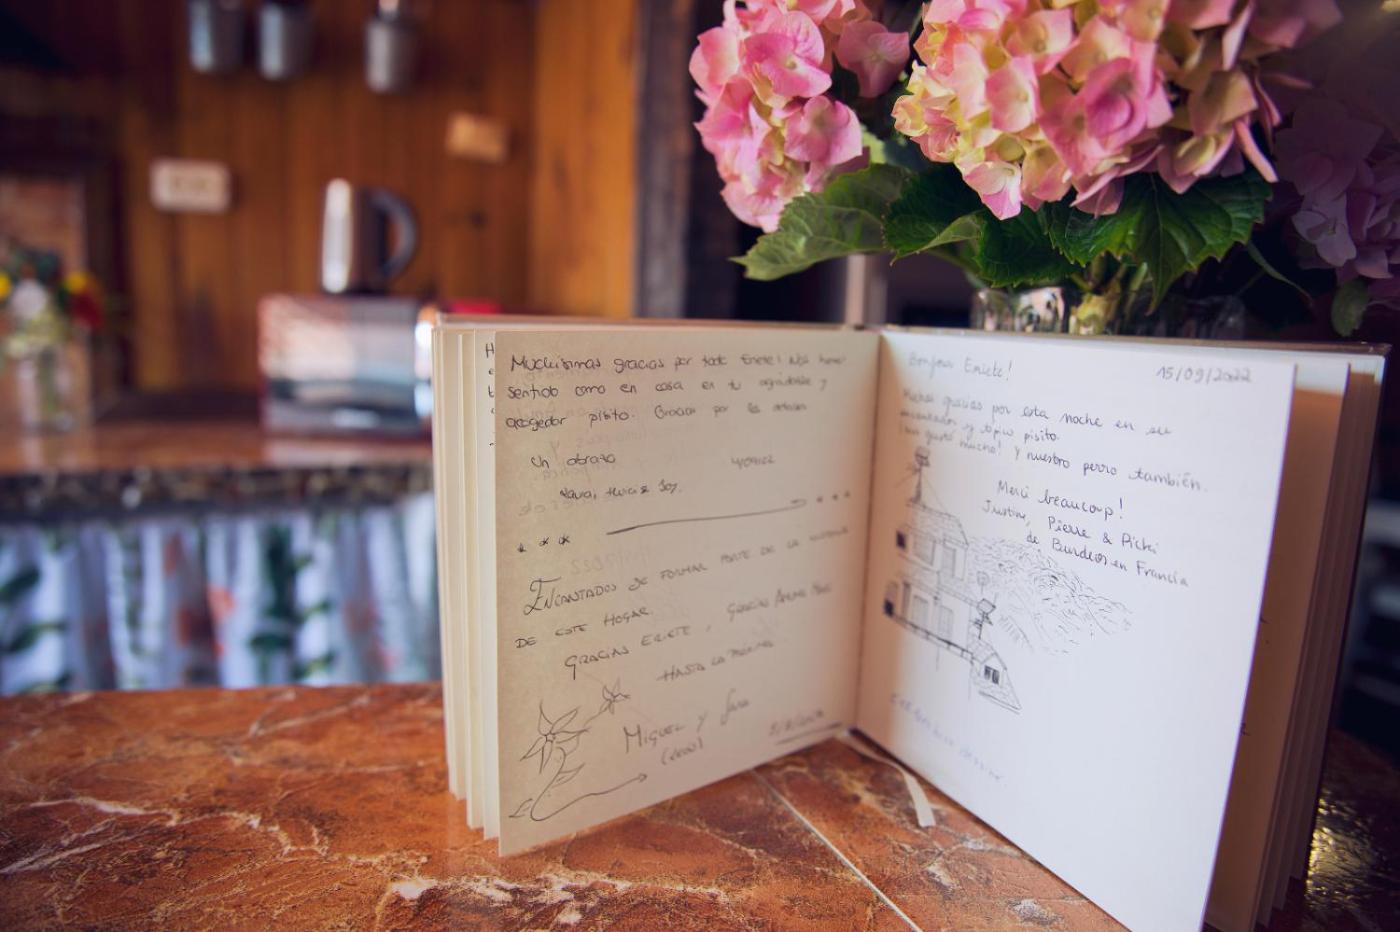 Muchísimas gracias por todo Eriete! Nos hemos
sentido como en casa en tu agradable y
acogedor pisito. Gracias por los
Un abrazo
4/09/22
Laura,
ENCANTADOS DE FORMAR PARTE DE LA HISTORIA
DE ESTE HOGAR.
GRACIAS ERIETE, GRACIAS
HASTA LA PRÓXIMA
MIGUEL Y Sara
Bonjour Eriete!
15/09/2022
Muchas gracias por esta noche en su
encantador y típico pisito.
¡nos gustó mucho! y nuestro perro también.
Merci beaucoup!
Justine, Pierre & Pichi
de Burdeos en Francia